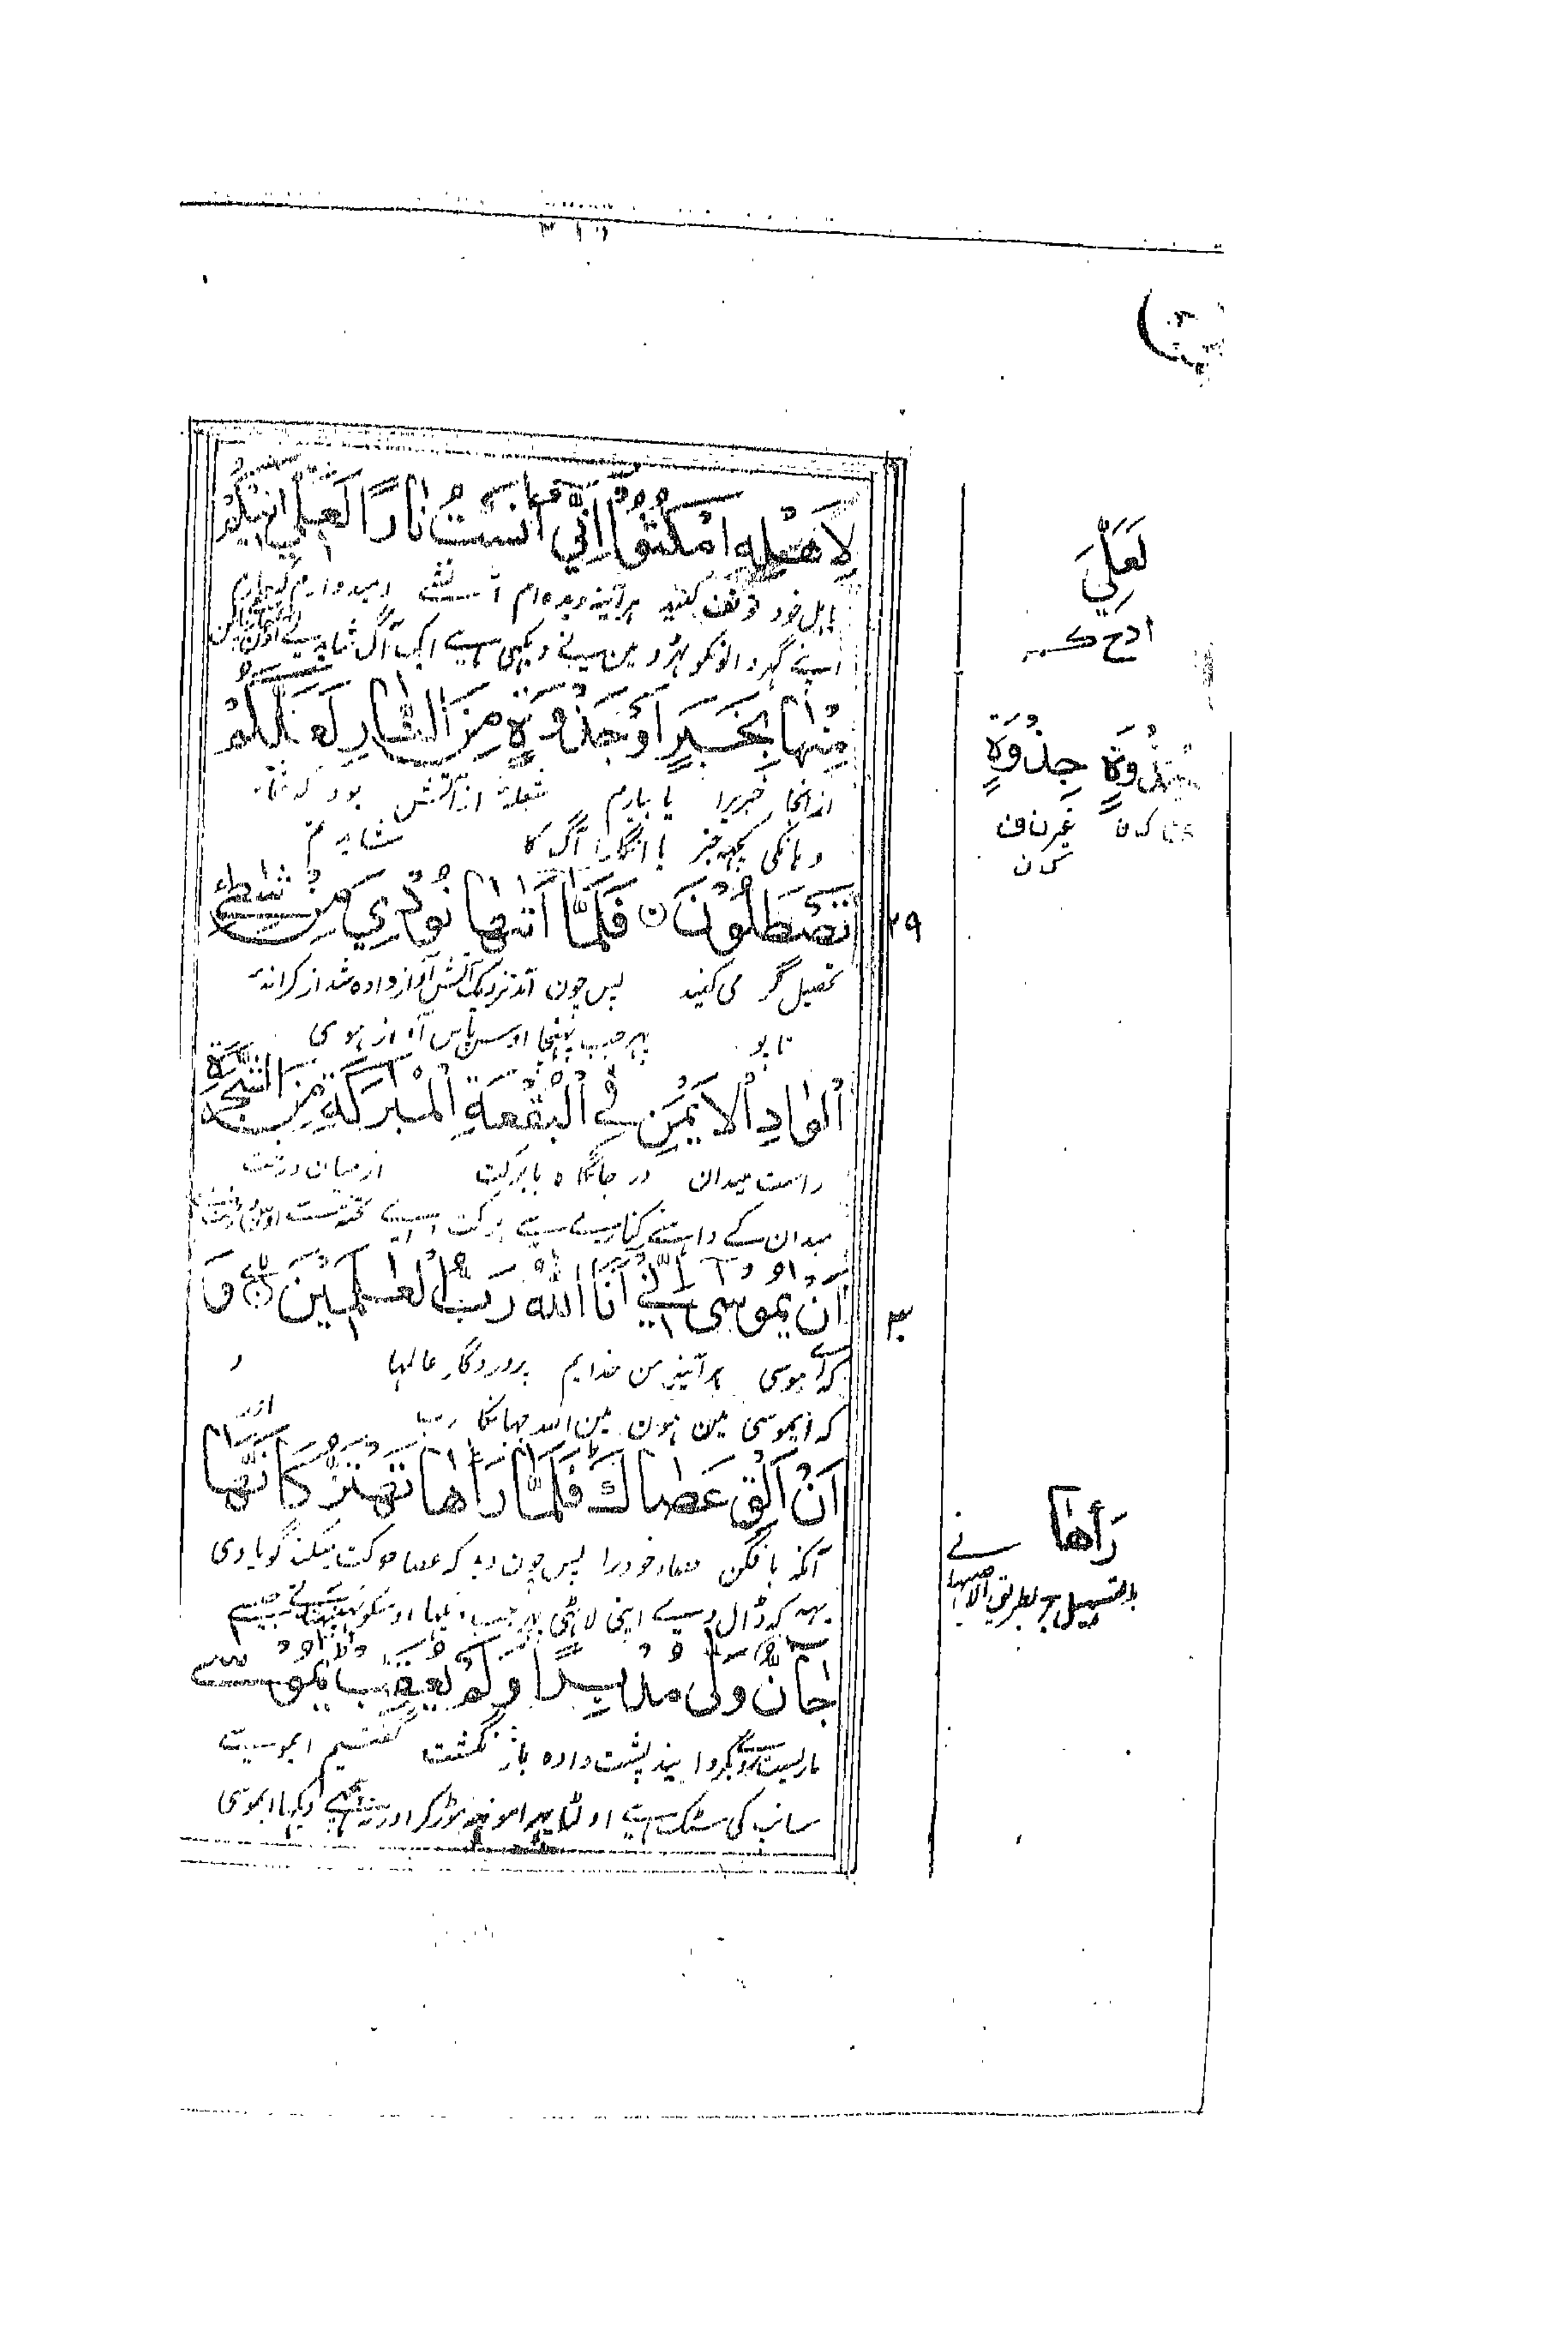 لِاَهْلِهِ امْكُثُوْۤا اِنِّیْۤ اٰنَسْتُ نَارًا لَّعَلِّیْۤ اٰتِیْكُمْ
باہل خود توقف کنید ہر آئینہ دیدہ ام آتشے امیدوارم کہ بیارم
اپنے گہر والونکو ٹہرو مین نے دیکہی ہے ایک آگ شاید لے آؤن
مِّنْهَا بِخَبَرٍ اَوْ جَذْوَةٍ مِّنَ النَّارِ لَعَلَّكُمْ
ازانجا خبریرا یا بیارم شعلۂ از آتش بود کہ شما
وہانکی کچہہ خبر یا انگارا آگ کا شاید تم
تَصْطَلُوْنَ ۝ فَلَمَّاۤ اَتٰىهَا نُوْدِیَ مِنْ شَاطِئِ
٢٩
تحصیل گرمی کنید پس چون آمد نزدیک آتش آواز دادہ شد از کرانۂ
تاپو پہر جب پہنچا اوس پاس آواز ہوی
الْوَادِ الْاَیْمَنِ فِی الْبُقْعَةِ الْمُبٰرَكَةِ مِنَ الشَّجَرَةِ
راست میدان در جائگاہ بابرکت ازمیان درخت
میدان کے داہنے کنارے سے برکت
اَنْ یّٰمُوْسٰۤی اِنِّیْۤ اَنَا اللّٰهُ رَبُّ الْعٰلَمِیْنَ ۝ وَ
٣٠
کہ اے موسی ہر آئینہ من خدایم پروردگار عالمہا و
کہ ایموسی مین ہون مین اللہ جہانکا رب اور
اَنْ اَلْقِ عَصَاكَ فَلَمَّا رَاٰهَا تَهْتَزُّ كَاَنَّهَا
آنکہ بافگن عصاء خودرا پس چون دید کہ عصا حرکت میکند گویا وی
یہہ کہ ڈال دے اپنی لاٹہی پہر جب دیکہا اوسکو
جَآنٌّ وَّلّٰی مُدْبِرًا وَّ لَمْ یُعَقِّبْ یٰمُوْسٰۤی
ماریست روبگردانید پشت دادہ باز نگشت گفتیم ایموسی
سانپ کی سٹک ہے اولٹا پہرا مونہہ موڑ کر اور نہ پیچہے دیکہا ایموسی
لَعَلِّيَ
ا د ح ک
جِذْوَةٍ
رَأهَا